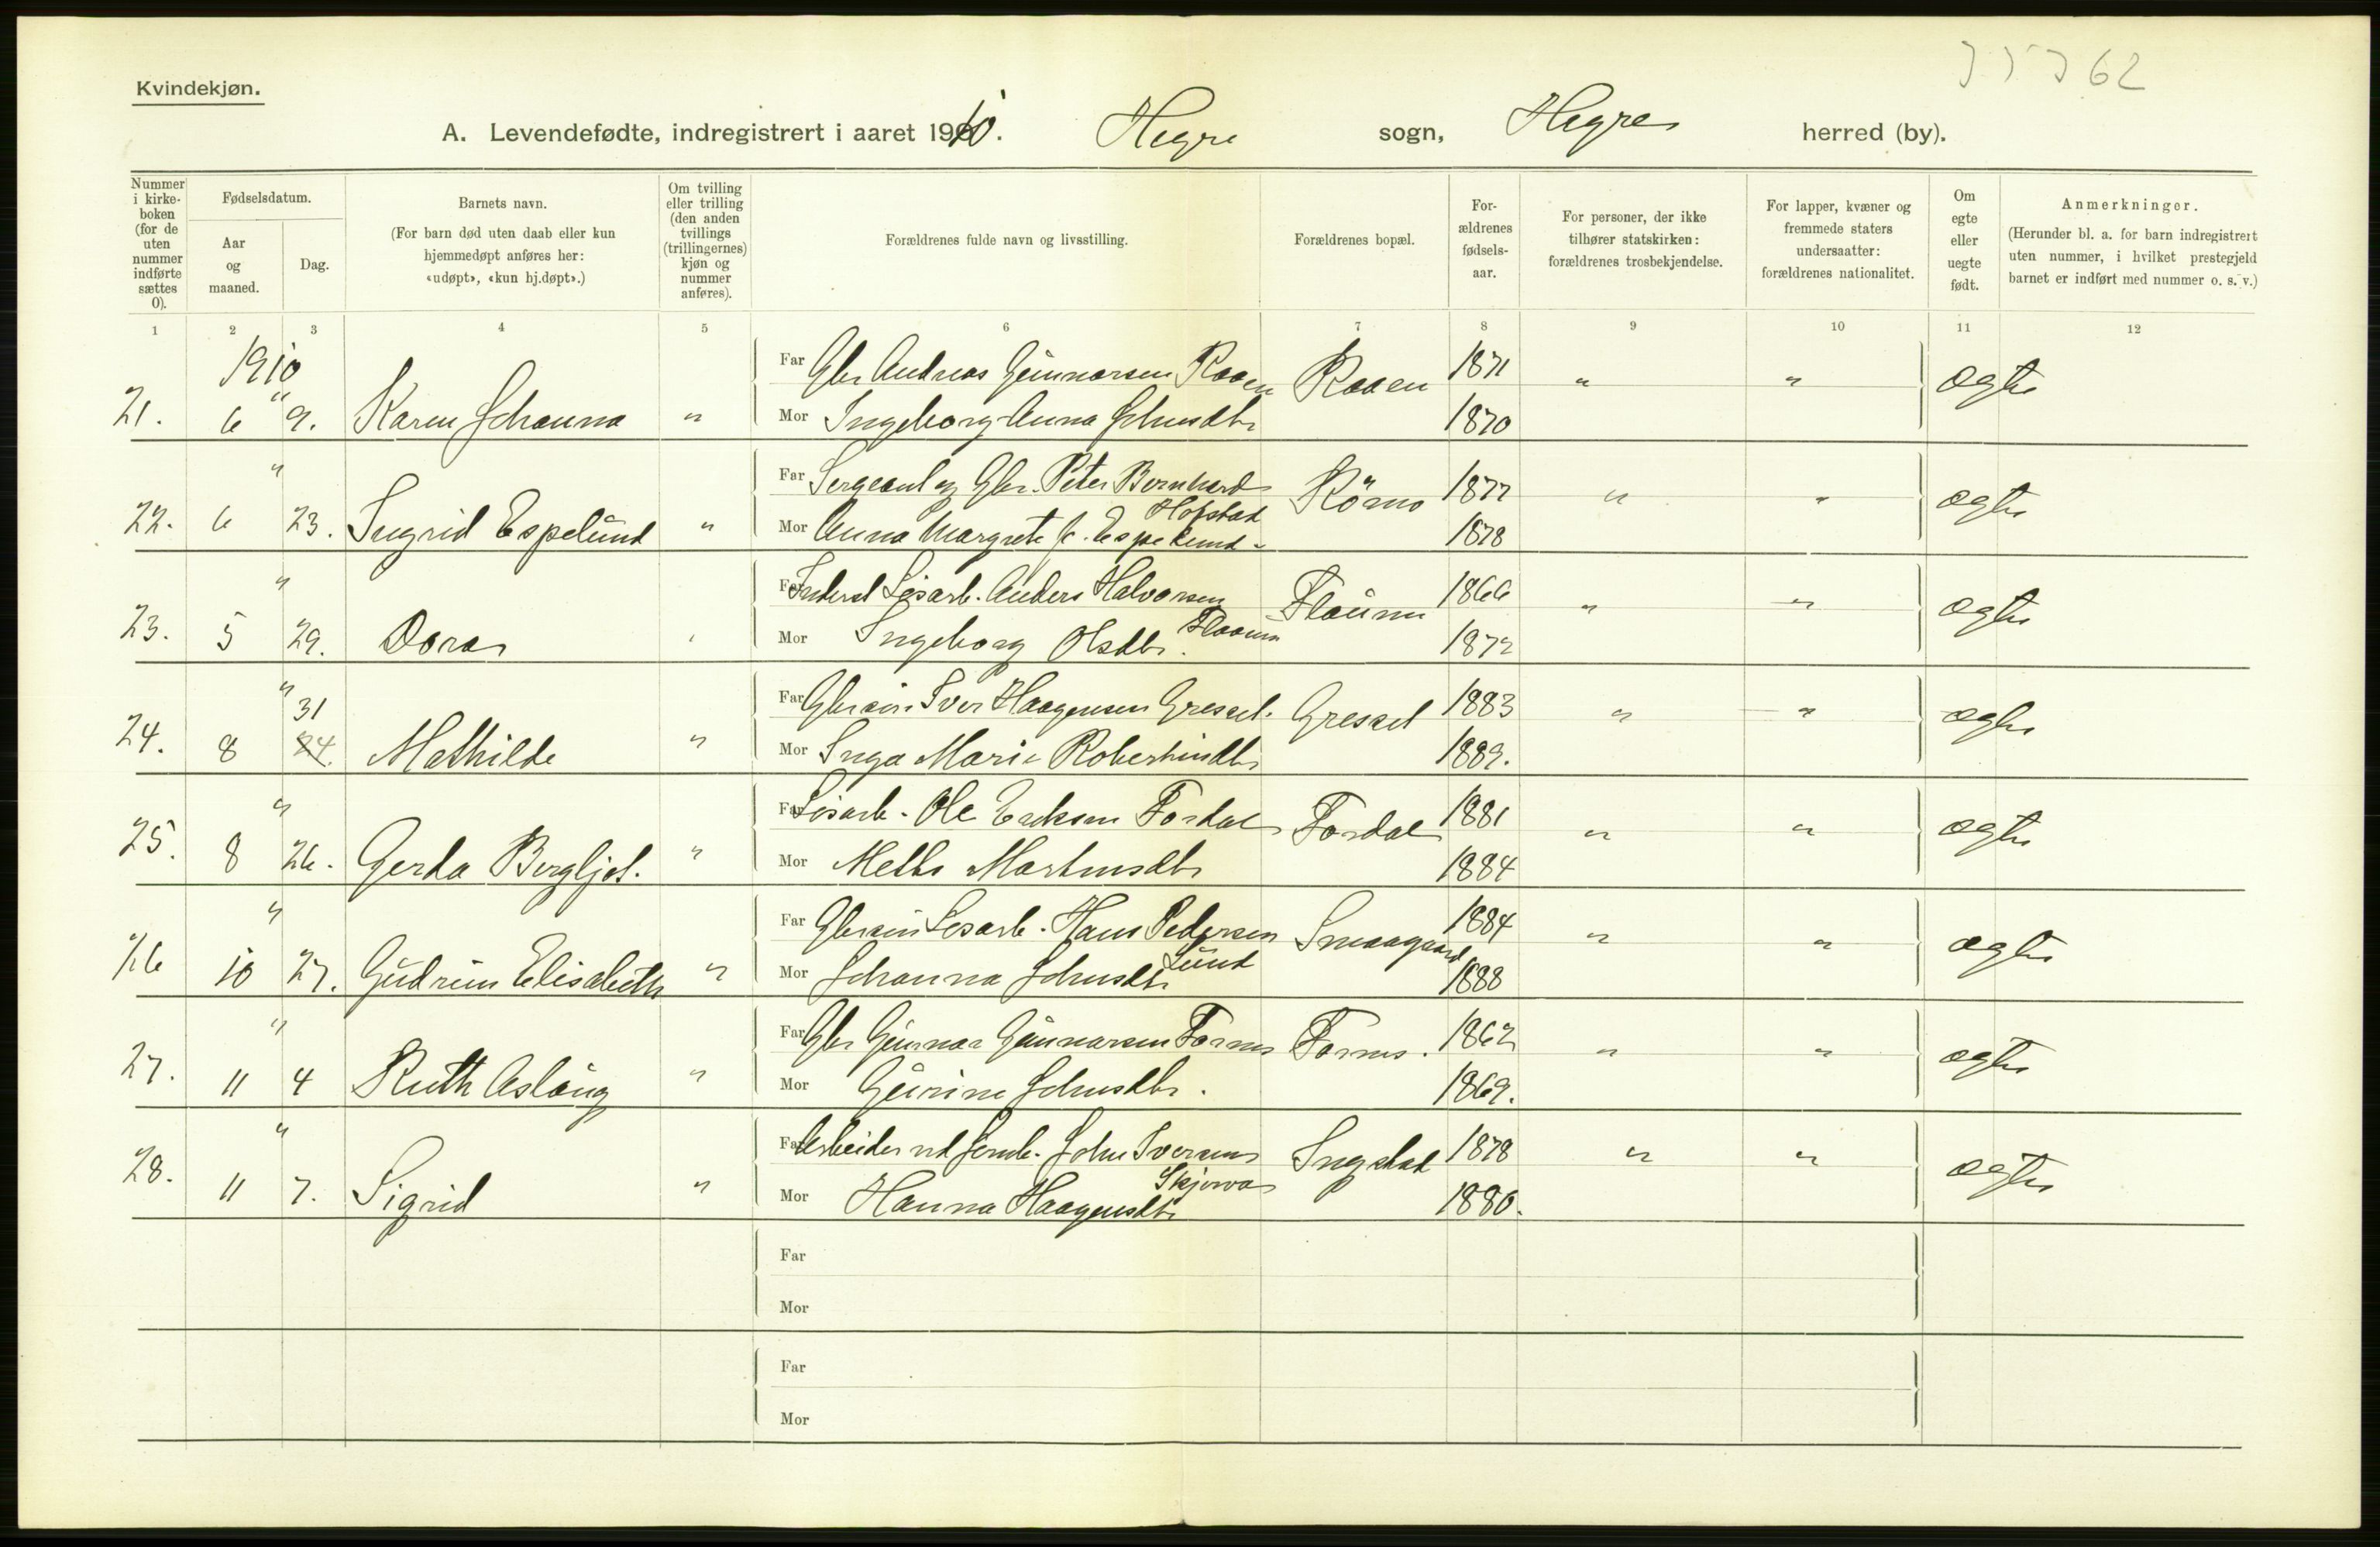 62
Kvindekjøn.
A. Levendefødte, indregistrert i aaret 1910. Hegre sogn, Hegre herred (by).
Nummer i kirkeboken (for de uten nummer indførte sættes 0).
Fødselsdatum.
Aar og maaned.
Dag.
Barnets navn.
(For barn død uten daab eller kun hjemmedøpt anføres her: «udøpt», «kun hj.døpt».)
Om tvilling eller trilling (den anden tvillings (trillingernes) kjøn og nummer anføres).
Forældrenes fulde navn og livsstilling.
Forældrenes bopæl.
Forældrenes fødselsaar.
For personer, der ikke tilhører statskirken: forældrenes trosbekjendelse.
For lapper, kvæner og fremmede staters undersaatter: forældrenes nationalitet.
Om egte eller uegte født.
Anmerkninger.
(Herunder bl. a. for barn indregistrert uten nummer, i hvilket prestegjeld barnet er indført med nummer o. s. v.)
1 2 3 4 5 6 7 8 9 10 11 12
1910
21. 6 9. Karen Johanna " Far Gbr Andreas Gunnarsen Raaen Raaen 1871 " " ægte
Mor Ingeborg Anna Johnsdtr 1870
"
22. 6 23. Ingrid Espelund " Far Sergeant og Gbr. Peter Bernhard Hofstad Römo 1877 " " ægte
Mor Anna Margrete J. Espelund 1878
"
23. 5 29. Dora Far Inderst Løsarb. Anders Halvorsen Flaaun 1866 " " ægte
Mor Ingeborg Olsdtr. 1872
"
24. 8 31 24. Mathilde " Far Gbrsøn Iver Haagensen Gressel. Gressel 1883 " " ægte
Mor Inga Marie 1889.
"
25. 8 26. Gerda Bergljot. " Far Løsarb. Ole Eriksen Fordal Fordal 1881 " " ægte
Mor Mette Martinsdtr 1884
"
26 10 27. Gudrun Elisabeth " Far Gbrsøn Løsarb. Hans Pedersen Lund Smaagaard 1884 " " ægte
Mor Johanna Johnsdtr 1888
"
27. 11 4 Ruth Aslaug " Far Gbr Gunnar Gunnarsen 1862 " " ægte
Mor Gurine Johnsdtr. 1869.
"
28. 11 7. Sigrid " Far Arbeider ved Jernb. John Iversen Ingstad 1878 " " ægte
Mor Hanna Haagensdtr 1880.
Far
Mor
Far
Mor